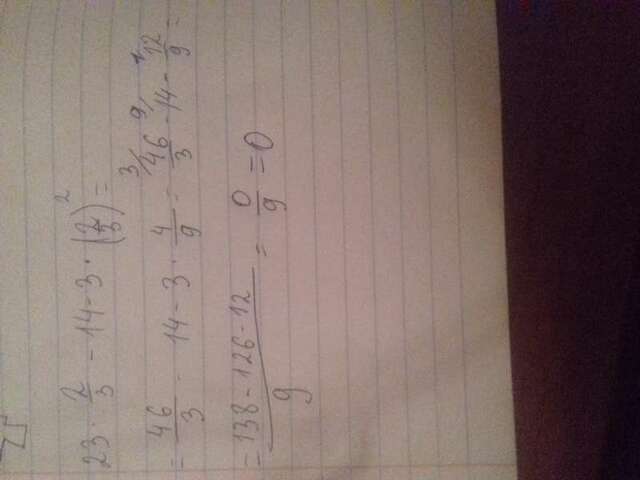 23 · 2/3 - 14 - 3 · (2/3)² =
= 46/3 - 14 - 3 · 4/9 = ³/46/3 - ⁹/14 - ¹/12/9 =
= (138 - 126 - 12)/9 = 0/9 = 0